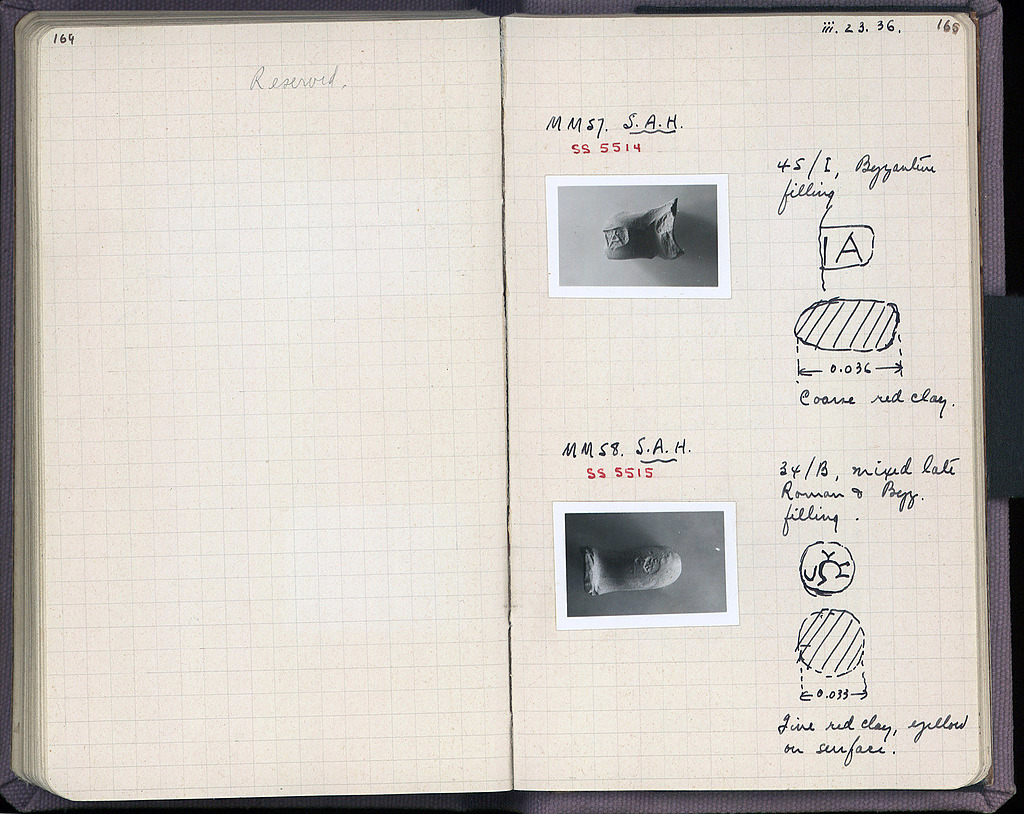 164
Reserved.
iii. 23. 36.
165
MM57. S.A.H.
SS 5514
45/I, Byzantine
filling
A
0.036
Coarse red clay.
MM58. S.A.H.
SS 5515
34/B, mixed late
Roman & Byz.
filling.
0.033
Fine red clay, yellow
on surface.